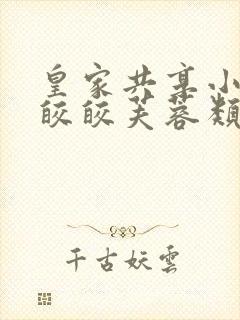 皇家共享小
皎皎芙蓉类
千古妖云